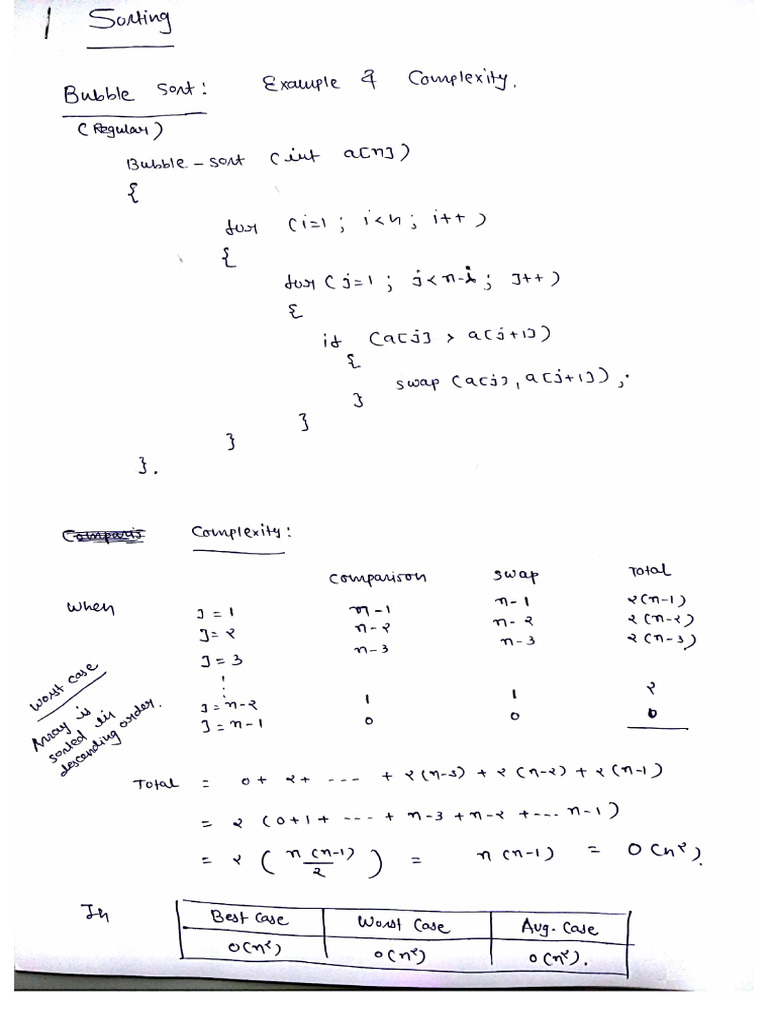 1 Sorting
Bubble Sort: Example & Complexity.
(Regular)
Bubble-sort (int a[n])
{
for (i=1; i<n; i++)
{
for (j=1; j<n-i; J++)
{
if (a[j] > a[j+1])
{
swap (a[j], a[j+1]);
}
}
}
}.
Comparis Complexity:
comparison swap Total
When J = 1 n-1 n-1 2(n-1)
J = 2 n-2 n-2 2(n-2)
J = 3 n-3 n-3 2(n-3)
J = n-2 1 1 2
J = n-1 0 0 0
Worst case
Array is
sorted in
descending order.
Total = 0 + 2 + --- + 2(n-3) + 2(n-2) + 2(n-1)
= 2 (0+1+ --- + n-3 + n-2 + --- n-1)
= 2 (n(n-1)/2) = n(n-1) = O(n²).
In
Best Case Worst Case Avg. Case
O(n²) O(n²) O(n²).